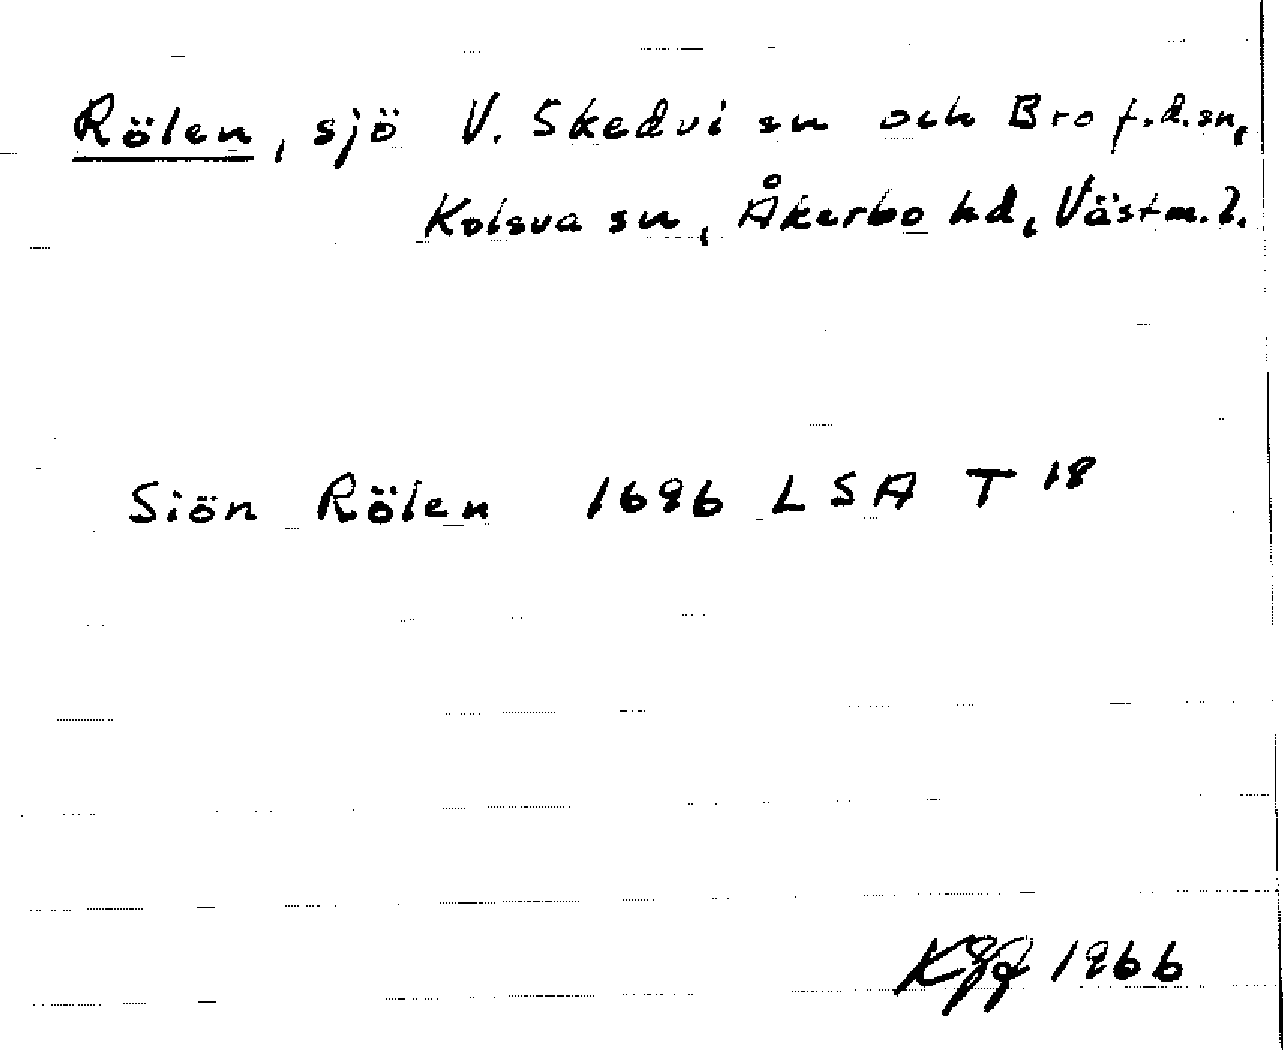 Rölen, sjö V. Skedvi sn och Bro f.d.sn,
Kolsva sn, Åkerbo hd, Västm. l.
Siön Rölen 1696 LSA T 18
1966